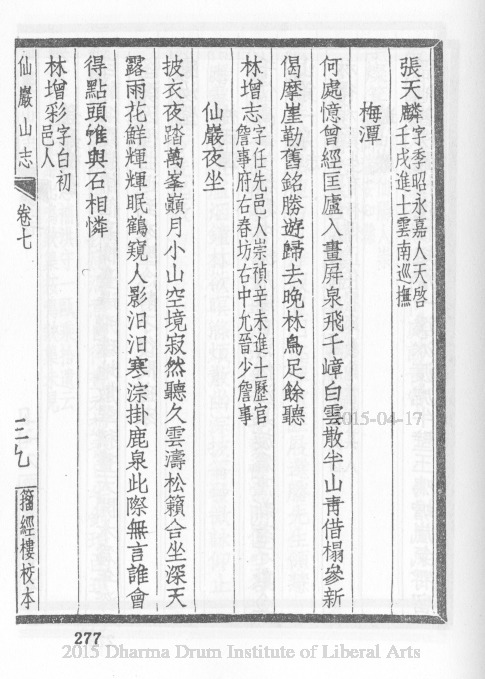 張天麟字季昭永嘉人天啓壬戌進士雲南巡撫
梅潭
何處憶曾經匡廬入畫屏泉飛千嶂白雲散半山青借榻參新
偈摩崖勒舊銘勝遊歸去晚林鳥足餘聽
林增志字任先邑人崇禎辛未進士歷官詹事府右春坊右中允晉少詹事
仙巖夜坐
披衣夜踏萬峯巔月小山空境寂然聽久雲濤松籟合坐深天
露雨花鮮輝輝眠鶴窺人影汨汨寒淙掛鹿泉此際無言誰會
得點頭惟與石相憐
林增彩字白初邑人
仙巖山志
卷七
三九
籀經樓校本
277
2015-04-17
2015 Dharma Drum Institute of Liberal Arts